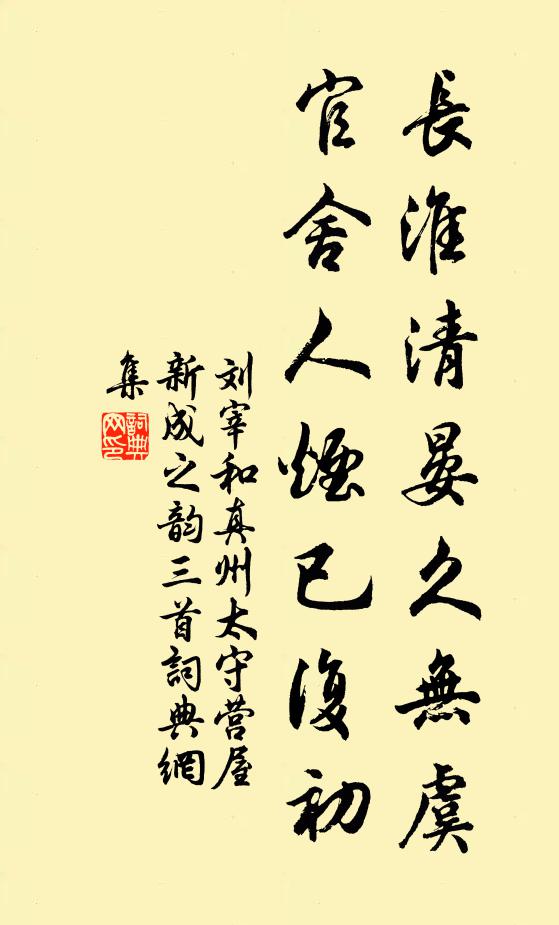 長淮清晏久無虞
官舍人煙已復初
刘宰和真州太守营屋
新成之韵三首詞典網
集
詞典网印